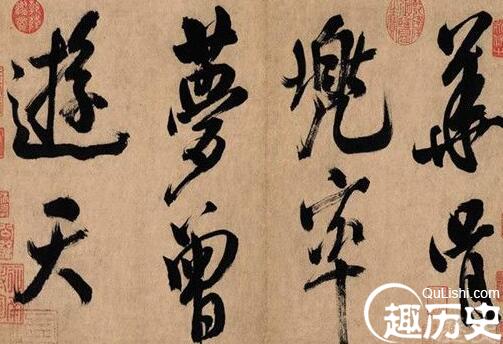 華胥
兜率
夢曾
遊天
QuLishi.com
趣历史